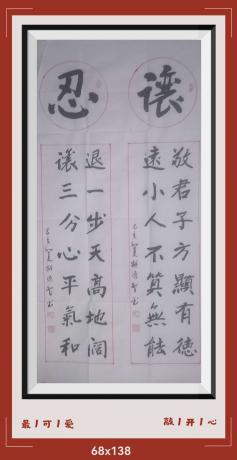 讓
敬君子方顯有德
遠小人不算無能
忍
退一步天高地闊
讓三分心平氣和
最1可1愛
敲1开1心
68x138